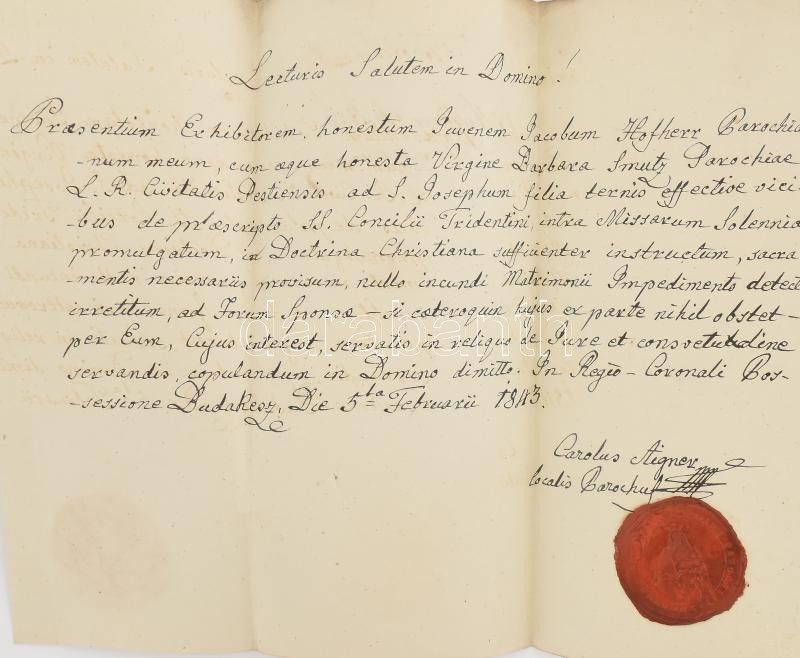 Lecturis Salutem in Domino!
Præsentium Exhibitorem, honestum Juvenem Jacobum Hofherr Parochia
-num meum, cum æque honesta Virgine Barbara Smutz Parochiae
L. R. Civitatis Pestiensis ad S. Josephum filia ternis effective vici-
-bus de præscripto SS. Concilii Tridentini, intra Missarum Solennia
promulgatum, in Doctrina Christiana suffiienter instructum, sacra
-mentis necessariis provisum, nullo incundi Matrimonii Impedimento detect
irretitum, ad Forum Sponsæ – si cæteroquin hujus ex parte nihil obstet –
per Eum, Cujus interest, servatis in reliquo de Jure et consvetudine
servandis, copulandum in Domino dimitto. In Regio-Coronali Pos-
-sessione Budakesz, Die 5ta Februarii 1843.
Carolus Aigner
localis Parochus
darabanth